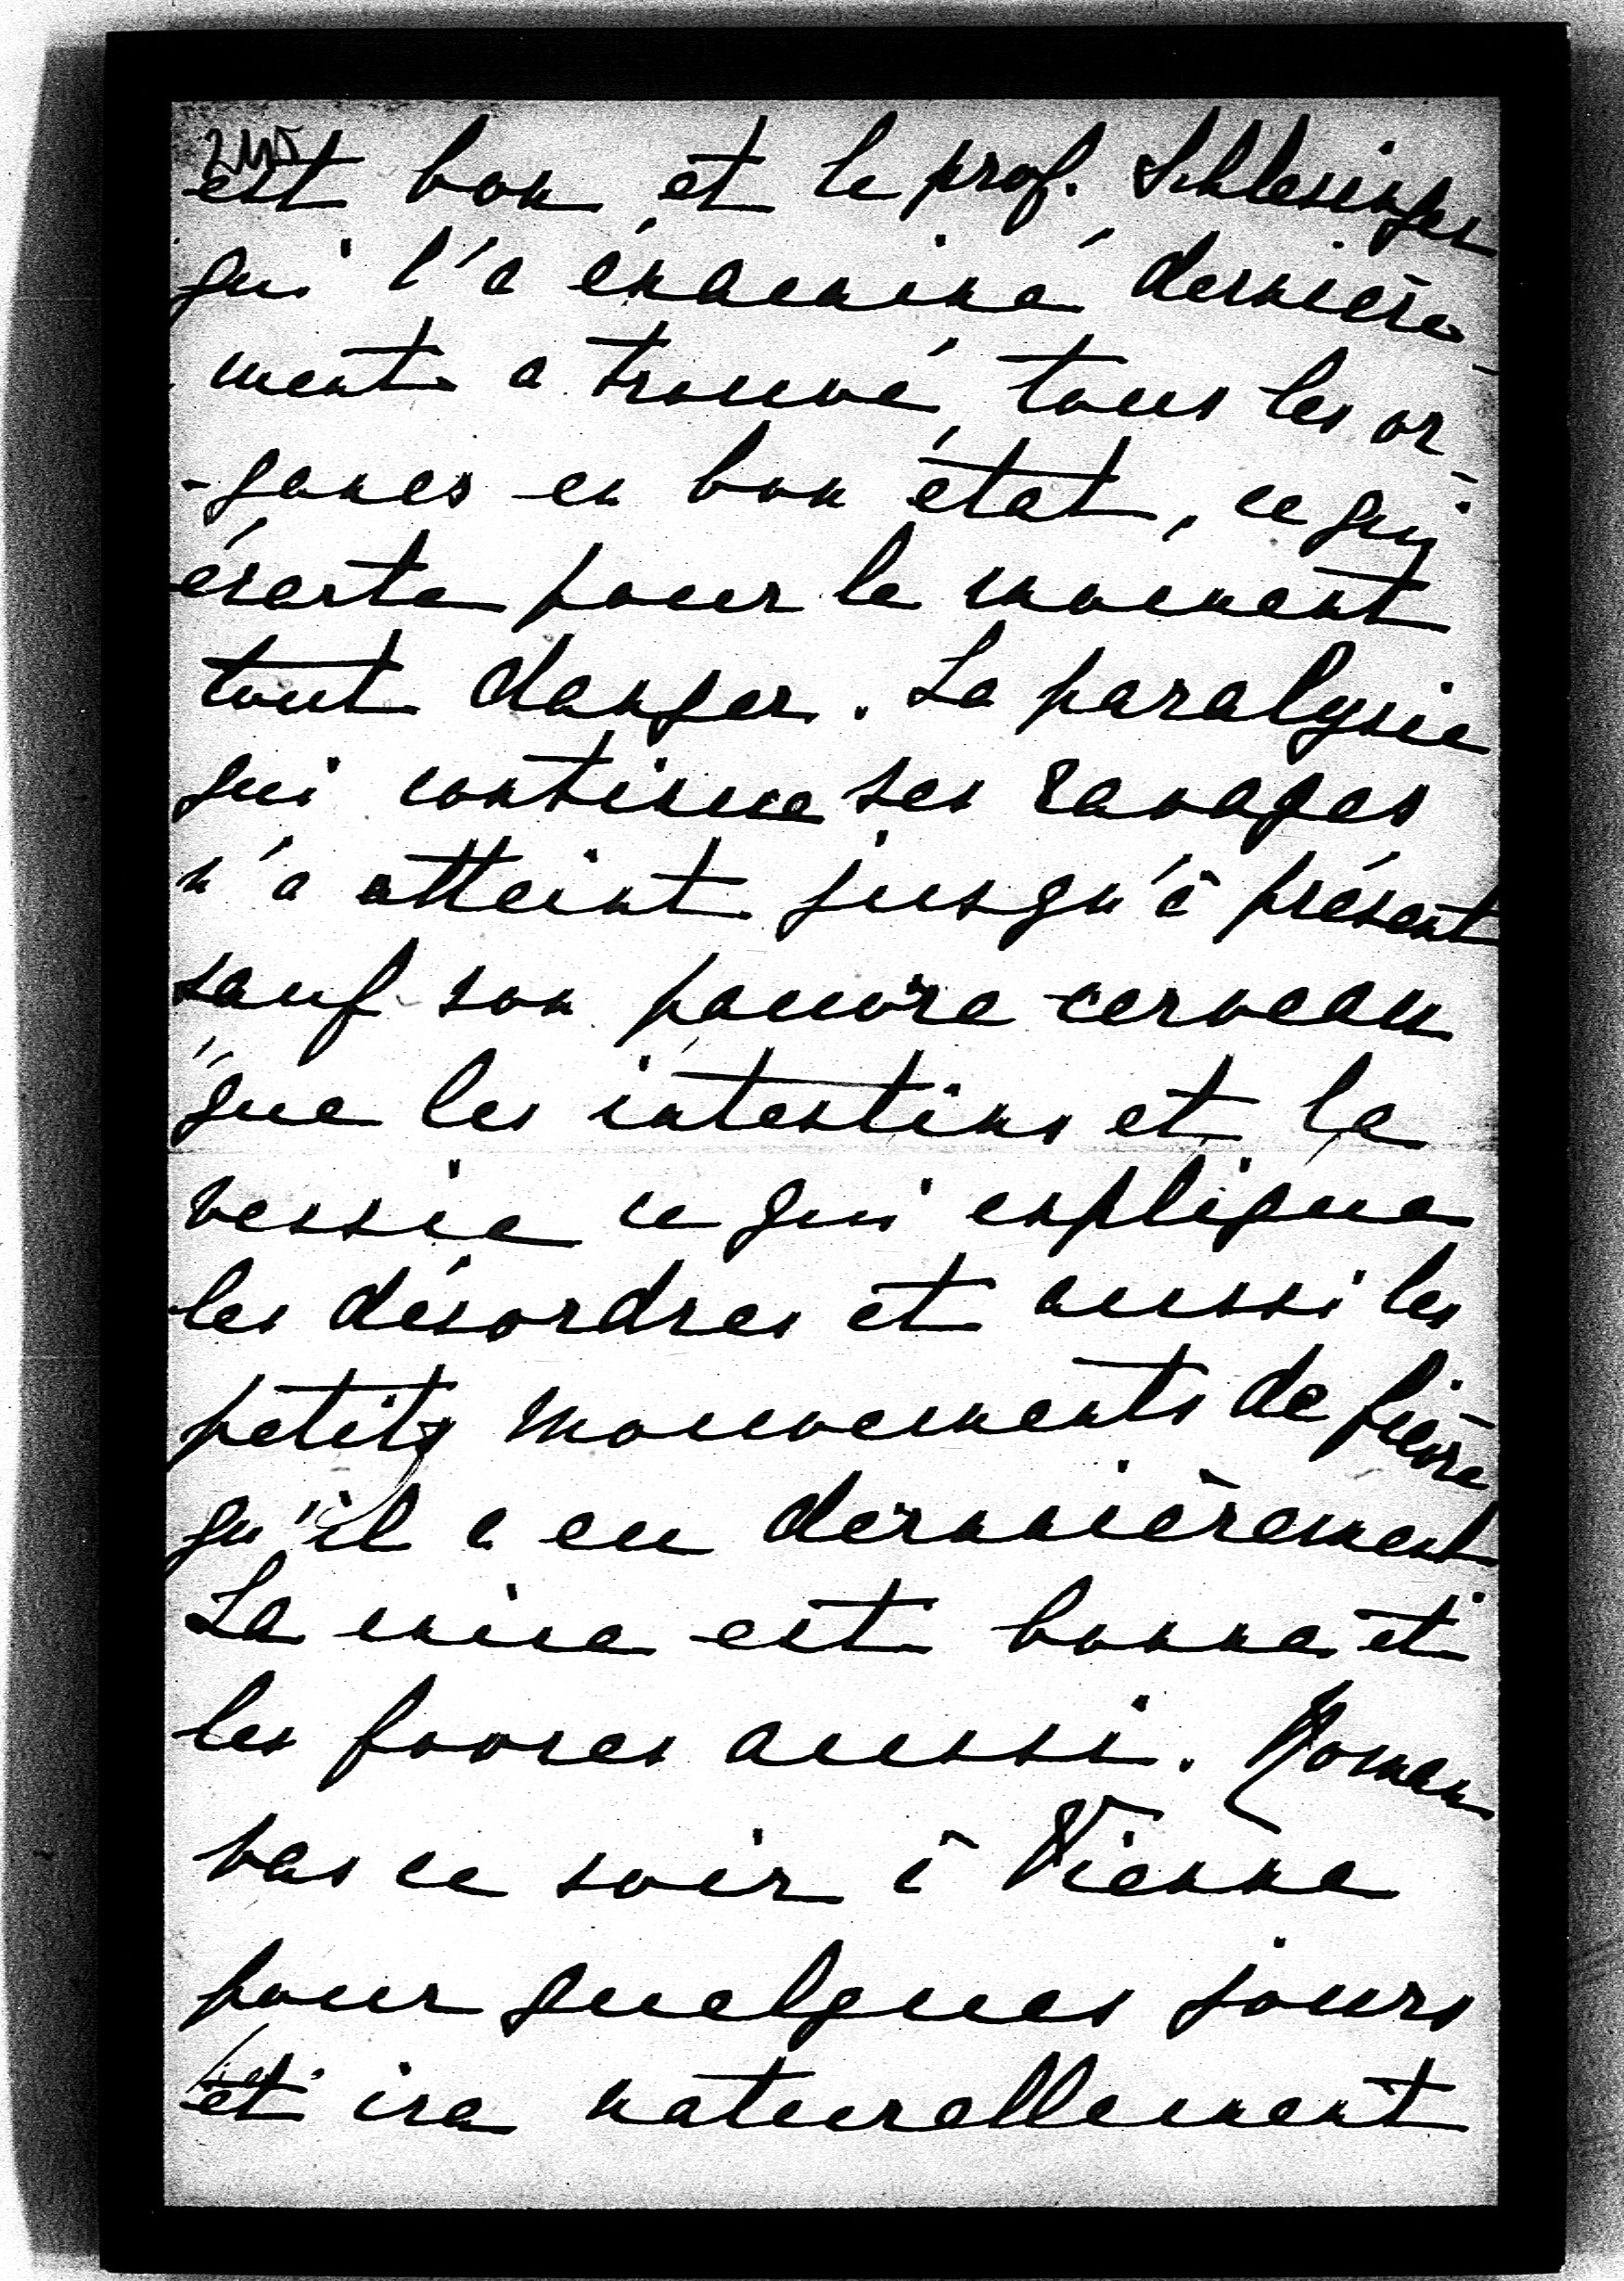 est bon et le prof. Schlesinger
qui l'a examiné dernière-
ment a trouvé tous les or-
-ganes en bon état, ce qui
écarte pour le moment
tout danger. La paralysie
qui continue ses ravages
n'a atteint jusqu'à présent
sauf son pauvre cerveau
que les intestins et la
vessie ce qui explique
les désordres et aussi les
petits mouvements de fièvre
qu'il a eu dernièrement
La mine est bonne et
les forces aussi. Roman
vas ce soir à Vienne
pour quelques jours
et ira naturellement